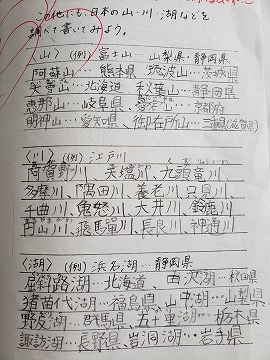 この他にも、日本の山・川・湖などを
調べて書いてみよう。
〈山〉(例)富士山…山梨県・静岡県
阿蘇山…熊本県 筑波山…茨城県
北海道 秋葉山…静岡県
恵那山…岐阜県 愛宕山…京都府
明神山…愛知県 御在所山…三重県(滋賀県)
〈川〉(例)江戸川
阿賀野川、天塩川、九頭竜川、
多摩川、隅田川、養老川、只見川、
千曲川、鬼怒川、大井川、鈴鹿川
円山川、飛馬川、長良川、神通川
〈湖〉(例)浜名湖…静岡県
屈斜路湖…北海道、田沢湖…秋田県
猪苗代湖…福島県、山中湖…山梨県
野反湖…群馬県、五十里湖…栃木県
諏訪湖…長野県、岩洞湖…岩手県